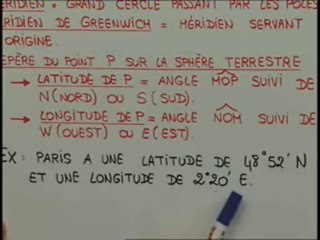 MÉRIDIEN = GRAND CERCLE PASSANT PAR LES PÔLES
MÉRIDIEN DE GREENWICH = MÉRIDIEN SERVANT
ORIGINE.
REPÈRE DU POINT P SUR LA SPHÈRE TERRESTRE
→ LATITUDE DE P = ANGLE MOP SUIVI DE
N (NORD) OU S (SUD).
→ LONGITUDE DE P = ANGLE NOM SUIVI DE
W (OUEST) OU E (EST).
EX: PARIS A UNE LATITUDE DE 48°52' N
ET UNE LONGITUDE DE 2°20' E.